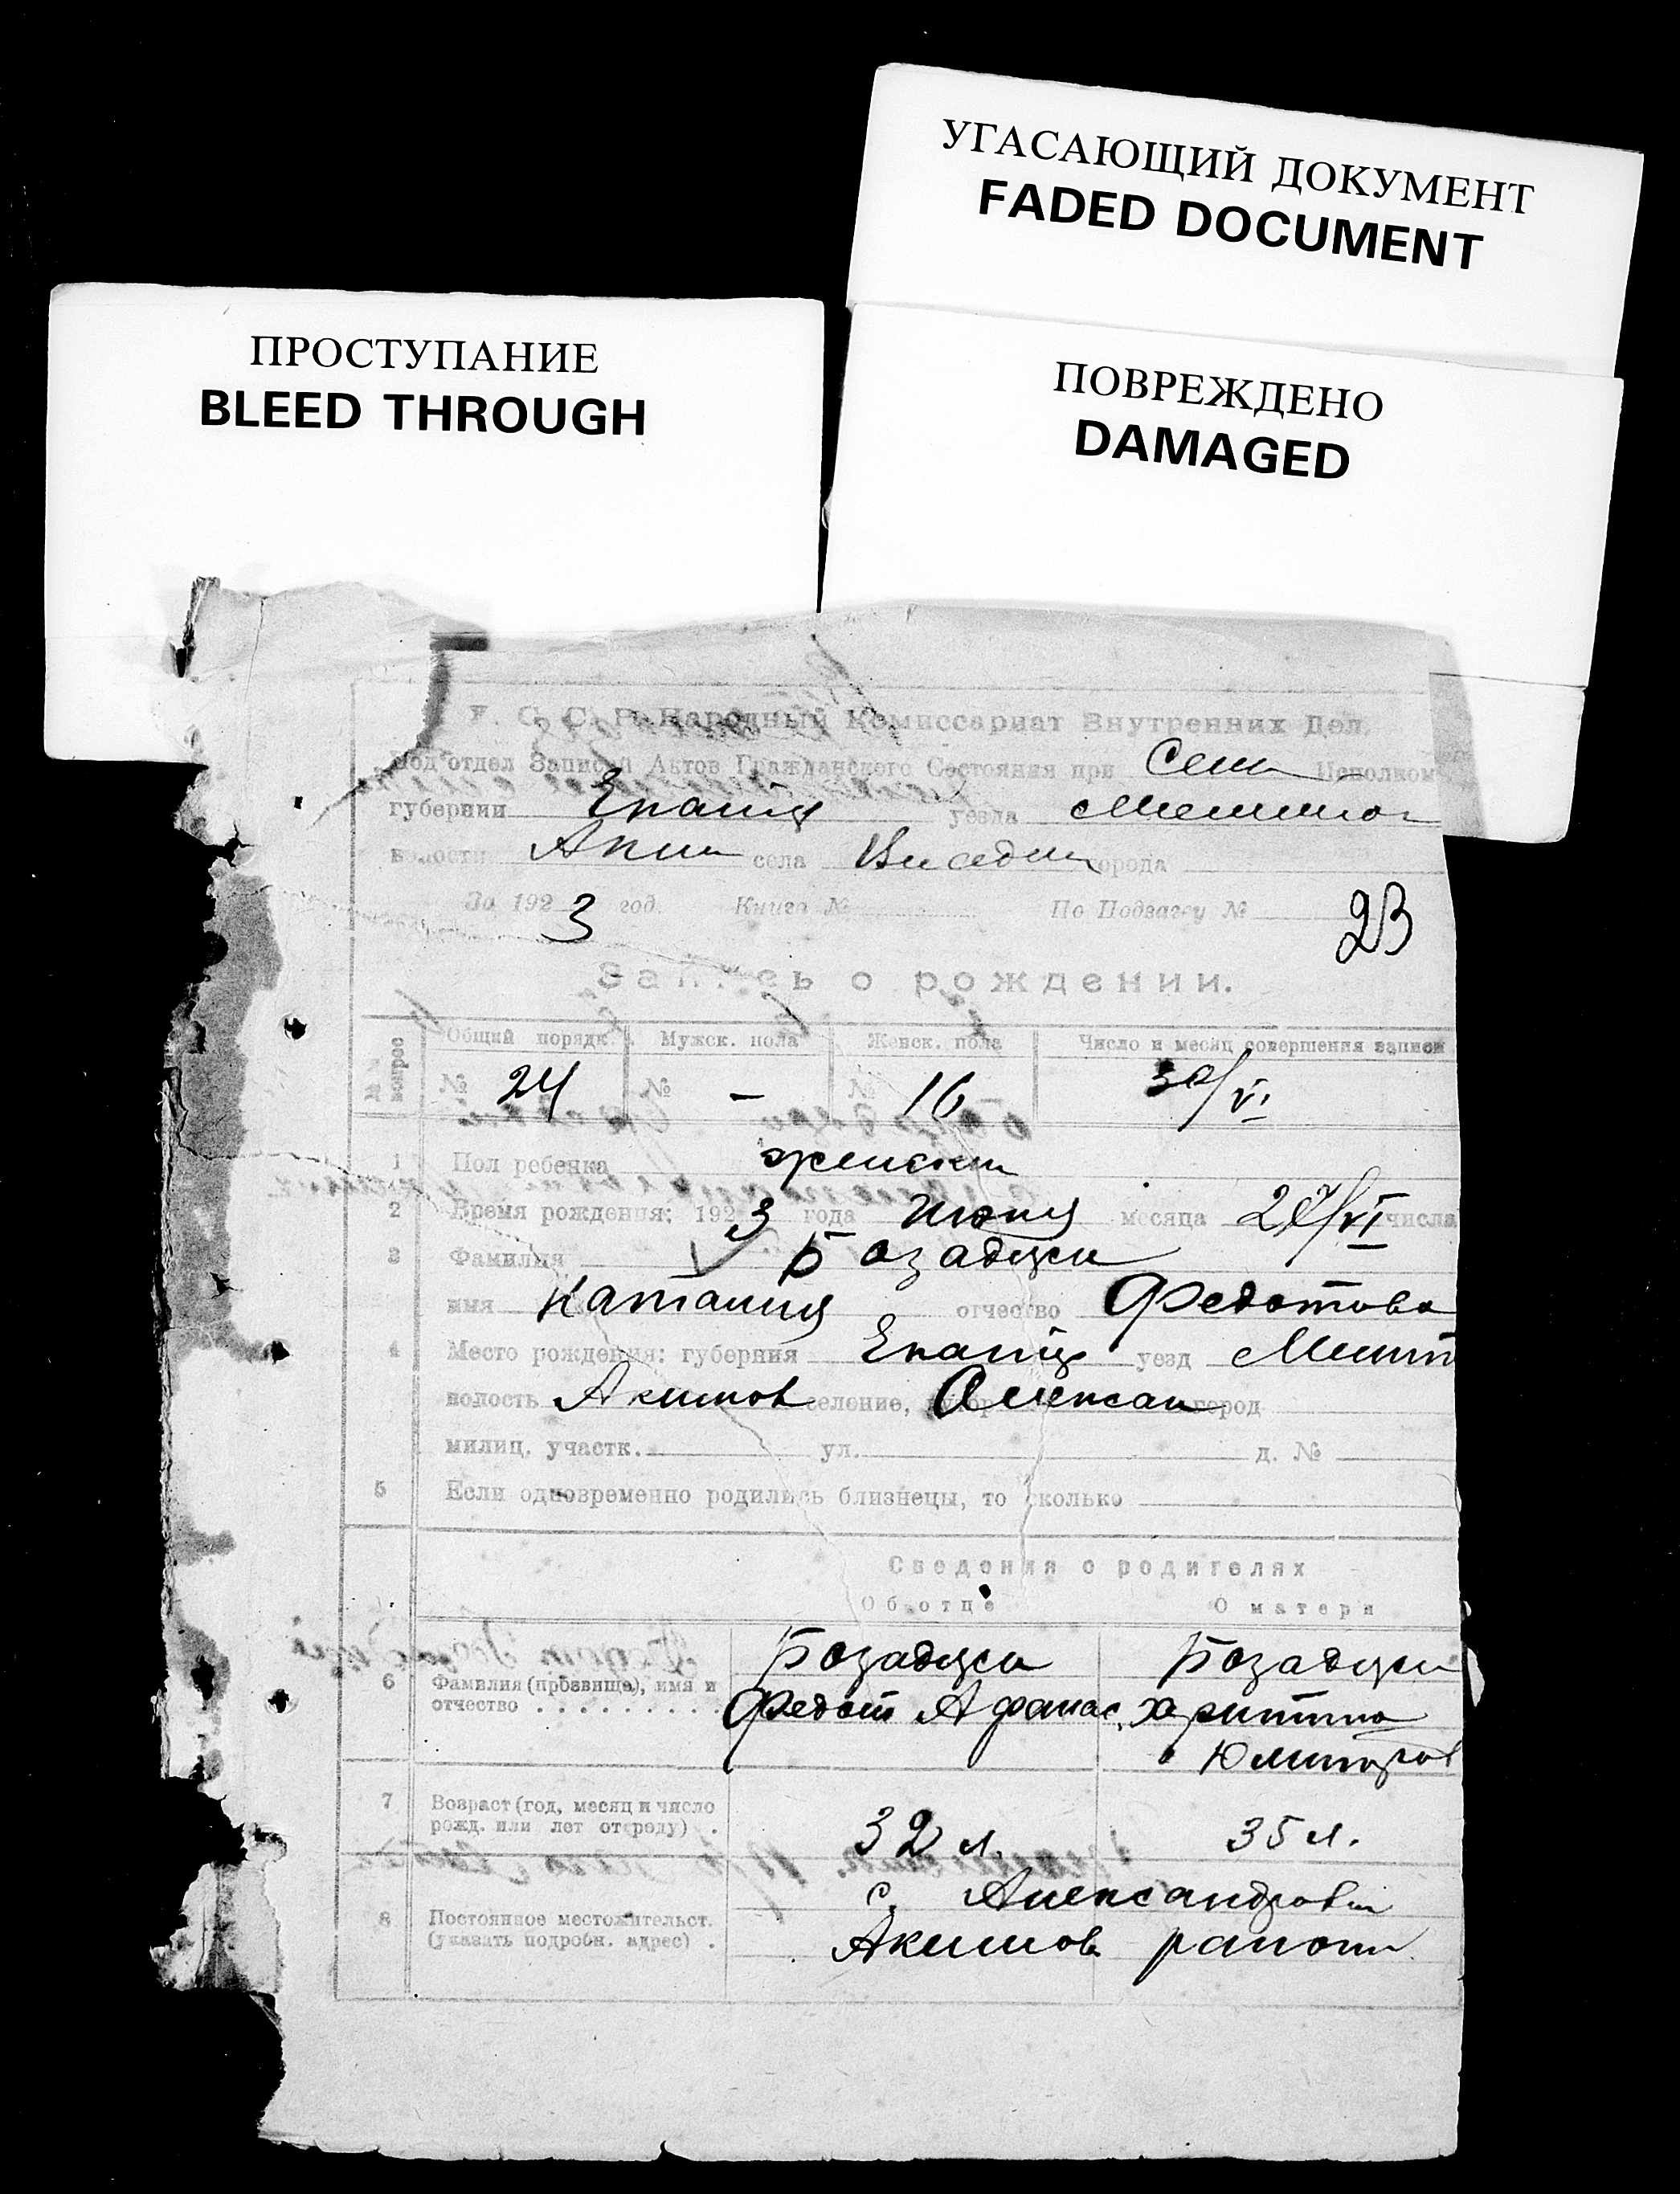 УГАСАЮЩИЙ ДОКУМЕНТ
FADED DOCUMENT
ПРОСТУПАНИЕ
BLEED THROUGH
ПОВРЕЖДЕНО
DAMAGED
У. С. С. Р. Народный Комиссариат Внутренних Дел.
Под'отдел Записей Актов Гражданского Состояния при Исполком
губернии Екат уезда
волости Аким села города
За 1923 год. Книга № По Подзагсу № 23
Запись о рождении.
№№ вопрос Общий порядк. Мужск. пола Женск. пола Число и месяц совершения записи
№ 24 № - № 16 30/VI
1 Пол ребенка женский
2 Время рождения: 1923 года Июня месяца /VI числа
3 Фамилия Бозаджи
имя отчество Федотова
4 Место рождения: губерния Екат уезд Мелит
волость Акимов селение, хутор Алексан город
милиц. участк. ул. д. №
5 Если одновременно родились близнецы, то сколько
Сведения о родителях
Об отце О матери
Бозаджи Бозаджи
6 Фамилия (прозвище), имя и отчество Федот Афанас. Харитина
7 Возраст (год, месяц и число рожд. или лет отроду) . 32 л. 35 л.
с. Александровки
8 Постоянное местожительст. (указать подробн. адрес) . Акимов района